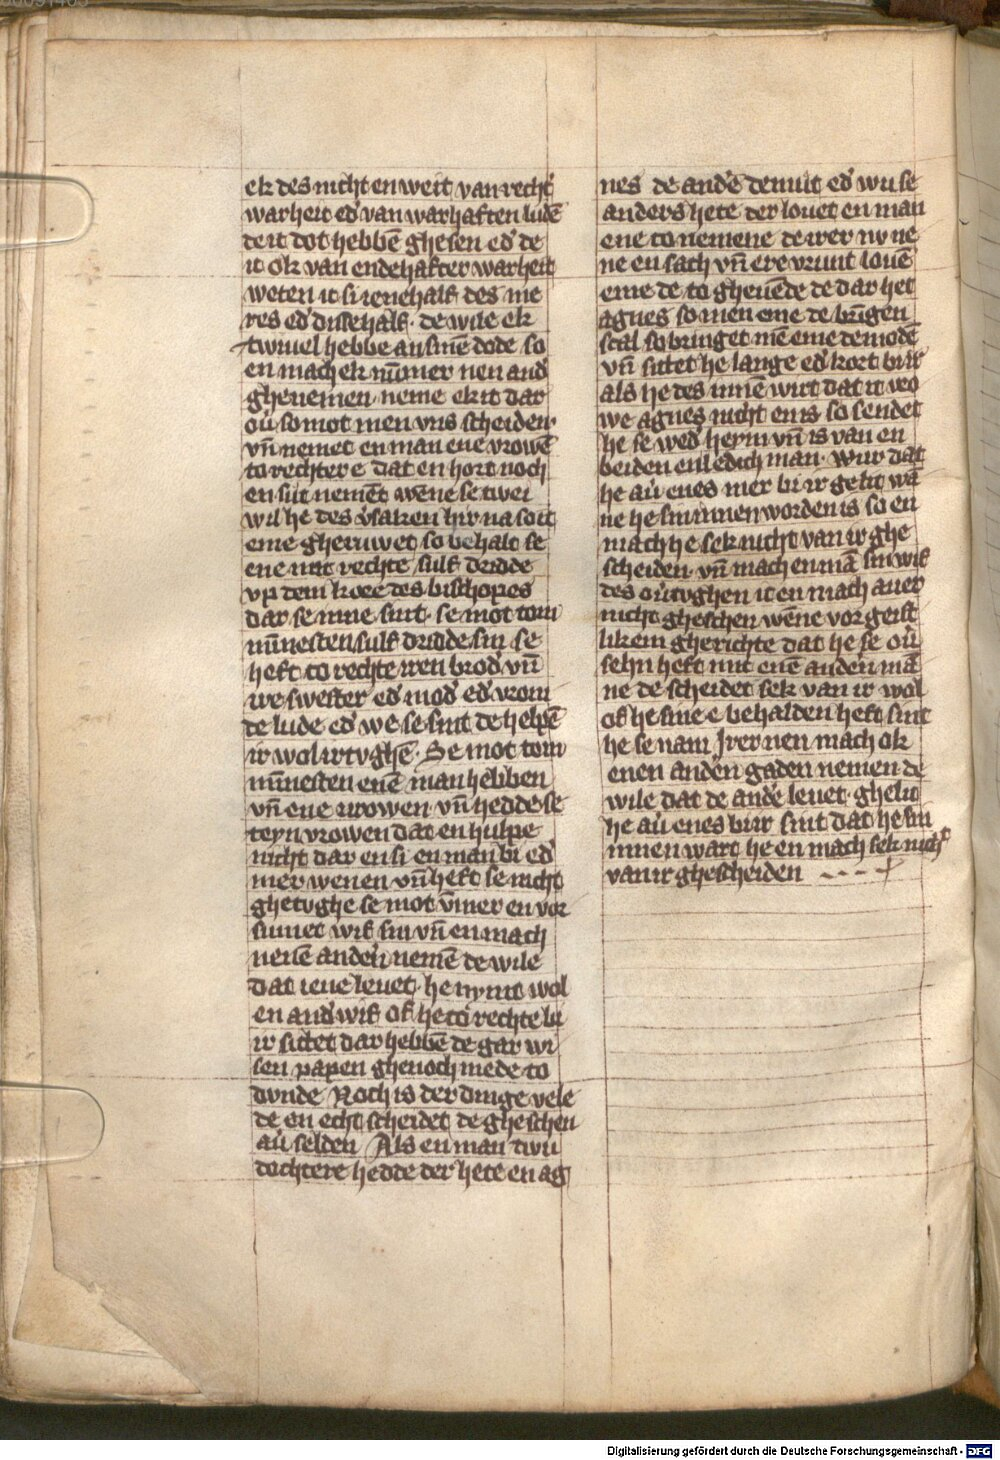 ek des nicht en weit van recht͛
warheit ed͛ van warhaften ludē
de it dot hebbē ghesen ed͛ de
it ok van endehafter warheit
weten it si ienehalf des me
res ed͛ dissehalf · de wile ek
twiuel hebbe an sinē dode so
en mach ek nūmer nen and͛
ghenemen · neme ek it dar
ou͛ so mot men vns scheiden ·
vn̄ nemet en man ene vrowē
to rechter e dat en hort noch
en sut nemēt wēne se twei
wil he des v͛saken hir na so it
eme gheruwet so behalt se
ene mit rechte sulf dridde
vp dem kore des bischopes
dar se inne sint · se mot tom
mīnesten sulf dridde sin se
heft to rechte wen brod͛ vn̄
we swester ed͛ mod͛ ed͛ vrom
de lude ed͛ we se sint de helpē
ir wol irtvghē · Se mot tom
mīnesten enē man hebben
vn̄ ene vrowen vn̄ hedde se
teyn vrowen dat en hulpe
nicht dar en si en man bi ed͛
mer wenen vn̄ heft se nicht
ghetvghe se mot v̄mer en vor
sumet wif sin vn̄ en mach
nenē anden nemē de wile
dat iene leuet · he nymt wol
en and͛ wif of he to rechte bi
ir sittet dar hebbē de gar wi
sen papen ghenoch mede to
dvnde Noch is der dinge vele
de en echt scheidet de gheschen
au͛ selden Als en man twu
dochtere hedde der hete en ag
nes de and͛e demut ed͛ wu se
anders hete der louet en man
ene to nemene de irer ny ne
ne en sach vn̄ ere vrunt louē
eme de to gheuēde de dar het
agnes so men eme de brīgen
scal so bringet mē eme demodē
vn̄ sittet he lange ed͛ kort bi ir
als he des innē wirt dat it vro
we agnes nicht en is so sendet
he se wed͛ heym vn̄ is van en
beiden en ledich man · Wur dat
he au͛ enes mer bi ir gelit wā
ne he sin innen worden is so en
mach he sek nicht van ir ghe
scheiden · vn̄ mach en mā sin wif
des ou͛tvghen it en mach auer
nicht gheschen wēne vor geist
likem gherichte dat he se ou͛
sehn heft mit enē anden mā
ne de scheidet sek van ir wol
of he sine e behalden heft sint
he se nam Irer nen mach ok
enen anden gaden nemen de
wile dat de and͛e leuet · ghelit
he au͛ enes bi ir sint dat he sin
innen wart he en mach sek nicht
van ir ghescheiden
Digitalisierung gefördert durch die Deutsche Forschungsgemeinschaft - DFG